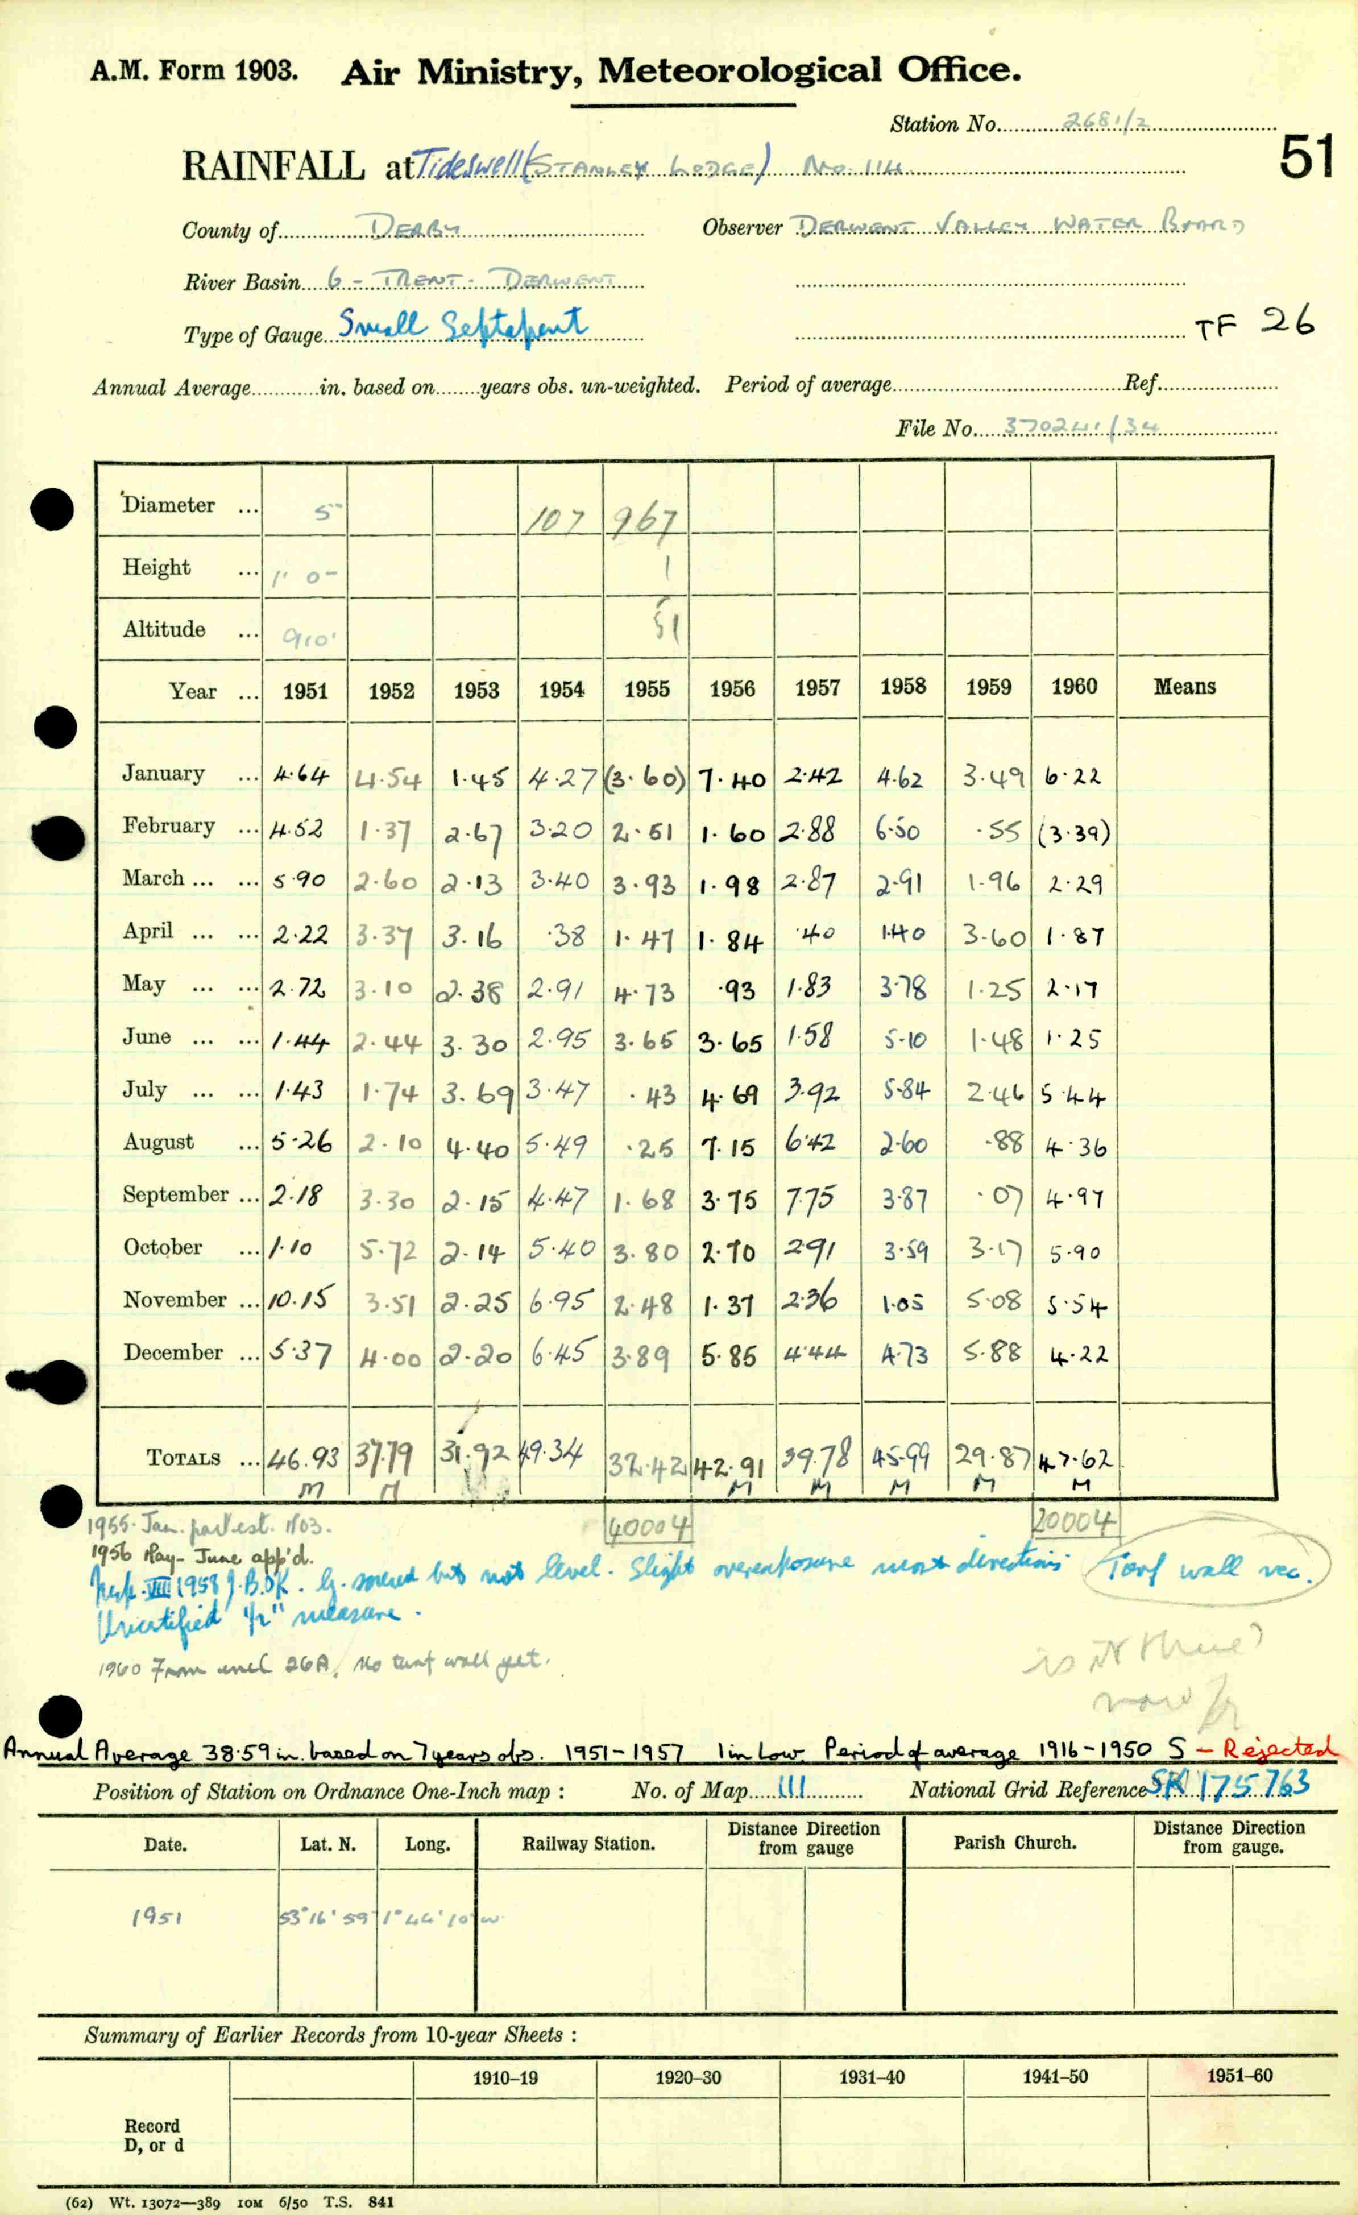 A.M. Form 1903. Air Ministry, Meteorological Office.
Station No. 2681/2
51
RAINFALL at Tideswell (STANLEY LODGE) No. 114
County of DERBY Observer DERWENT VALLEY WATER BOARD
River Basin 6 - TRENT - DERWENT
Type of Gauge Small Septapent TF 26
Annual Average in. based on years obs. un-weighted. Period of average Ref.
File No. 370241/34
Diameter ... 5 107 967
Height ... 1' 0" 1
Altitude ... 910' 51
Year ... 1951 1952 1953 1954 1955 1956 1957 1958 1959 1960 Means
January ... 4.64 4.54 1.45 4.27 (3.60) 7.40 2.42 4.62 3.49 6.22
February ... 4.52 1.37 2.67 3.20 2.51 1.60 2.88 6.50 .55 (3.39)
March ... ... 5.90 2.60 2.13 3.40 3.93 1.98 2.87 2.91 1.96 2.29
April ... ... 2.22 3.37 3.16 .38 1.47 1.84 .40 1.40 3.60 1.87
May ... ... 2.72 3.10 2.38 2.91 4.73 .93 1.83 3.78 1.25 2.17
June ... ... 1.44 2.44 3.30 2.95 3.65 3.65 1.58 5.10 1.48 1.25
July ... ... 1.43 1.74 3.69 3.47 .43 4.69 3.92 5.84 2.46 5.44
August ... 5.26 2.10 4.40 5.49 .25 7.15 6.42 2.60 .88 4.36
September ... 2.18 3.30 2.15 4.47 1.68 3.75 7.75 3.87 .07 4.97
October ... 1.10 5.72 2.14 5.40 3.80 2.70 2.91 3.59 3.17 5.90
November ... 10.15 3.51 2.25 6.95 2.48 1.37 2.36 1.05 5.08 5.54
December ... 5.37 4.00 2.20 6.45 3.89 5.85 4.44 4.73 5.88 4.22
TOTALS ... 46.93 37.79 31.92 49.34 32.42 42.91 39.78 45.99 29.87 47.62
M M M M M M M
40004 20004
1955. Jan. part est. 1103.
1956 May - June app'd.
Insp. VIII 1958 J.B.DK. G. sound but not level. Slight overexposure most directions Turf wall rec.
Uncertified 1/2" measure.
is it there
1960 From encl 26A, No turf wall yet.
now
Annual Average 38.59 in. based on 7 years obs. 1951-1957 1 in Low Period of average 1916-1950 S - Rejected
Position of Station on Ordnance One-Inch map : No. of Map 111 National Grid Reference SK 175763
Date. Lat. N. Long. Railway Station. Distance Direction from gauge Parish Church. Distance Direction from gauge.
1951 53° 16' 59" 1° 44' 10" W.
Summary of Earlier Records from 10-year Sheets :
1910–19 1920–30 1931–40 1941–50 1951–60
Record
D, or d
(62) Wt. 13072—389 10M 6/50 T.S. 841